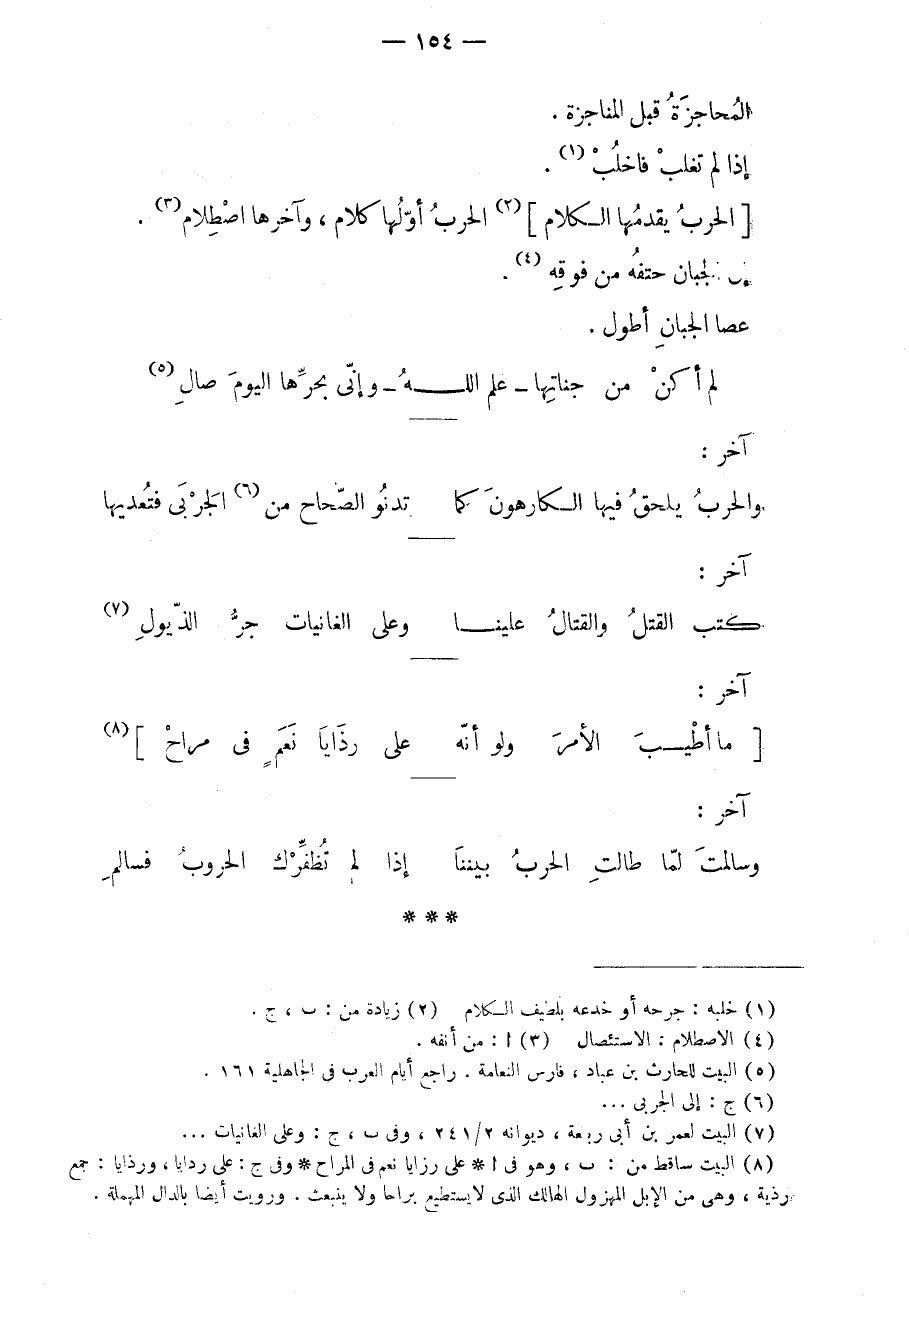 — ١٥٤ —
المُحاجزَةُ قبل المناجزة .
إذا لم تغلبْ فاخلُبْ (١) .
[ الحربُ يقدمُها الكلام ] (٢) الحربُ أوّلُها كلام ، وآخرها اصْطِلام (٣) .
الجبان حتفُه من فوقِه (٤) .
عصا الجبانِ أطول .
لم أكنْ من جناتِها ـ علم اللـهُ ـ وإنّى بحرِّها اليومَ صالِ (٥)
آخر :
والحربُ يلحقُ فيها الكارهونَ كما تدنُو الصّحاح من (٦) الجرْبَى فتُعديها
آخر :
كتب القتلُ والقتالُ علينـا وعلى الغانيات جرُّ الذّيولِ (٧)
آخر :
[ ما أطْيـبَ الأمرَ ولو أنّه على رذَايَا نَعَمٍ فى مراحْ ] (٨)
آخر :
وسالمتَ لمّا طالتِ الحربُ بيننَا إذا لم تُظفِّرْك الحروبُ فسالمِ
* * *
(١) خلبه : جرحه أو خدعه بلطيف الكلام (٢) زيادة من : ب ، ج .
(٤) الاصطلام : الاستئصال (٣) ا : من أنفه .
(٥) البيت للحارث بن عباد ، فارس النعامة . راجع أيام العرب فى الجاهلية ١٦١ .
(٦) ج : إلى الجربى ...
(٧) البيت لعمر بن أبى ربعة ، ديوانه ٢٤١/٢ ، وفى ب ، ج : وعلى الغانيات ...
(٨) البيت ساقط من : ب ، وهو فى ا * على رزايا نعم فى المراح * وفى ج : على ردايا ، ورذايا : جمع
رذية ، وهى من الإبل المهزول الهالك الذى لا يستطيع براحا ولا ينبعث . ورويت أيضا بالدال المهملة .